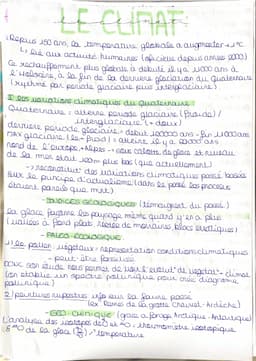 LE CLIMAT
Depuis 150 ans, la température globale a augmenter +1°C
↳ lié aux activité humaines (officiel depuis années 2000)
Ce réchauffement plus globale a débuté il y a 11000 ans à
l'Holocène, à la fin de la dernière glaciation du quaternaire
(rythmé par période glaciaire puis interglaciaire)
I. Les variations climatiques du Quaternaire
Quaternaire : alterne période glaciaire (froide) /
interglaciaire (+ doux)
dernière période glaciaire : début 120000 ans - fin 11000 ans
max glaciaire (le + froid) : atteint il y a 20000 ans
nord de l'europe + Alpes : calottes de glace et niveau
de la mer était 120m plus bas (que actuellement)
→ reconstituer des variations climatiques passé basée
sur le principe d'actualisme (dans le passé les process
étaient pareils que mtn)
- INDICES GÉOLOGIQUES (témoignent du passé)
la glace façonne les paysage même quand y'en a plus
(vallées à fond plats, restes de moraines blocs erratiques)
- PALEO ÉCOLOGIQUE
1) les pollen : végétaux = représentation conditions climatiques
- peut être fossilisé
donc son étude nous permet de
(on établie un spectre pollinique puis avec diagramme
pollinique)
2) peintures rupestres info sur la faune passé
(ex Reims de la grotte Chauvet - Ardèche)
- GÉO CHIMIQUE (grace a forage Arctique - Antarctique)
L'analyse des isotopes de O
δ18O de la glace → température